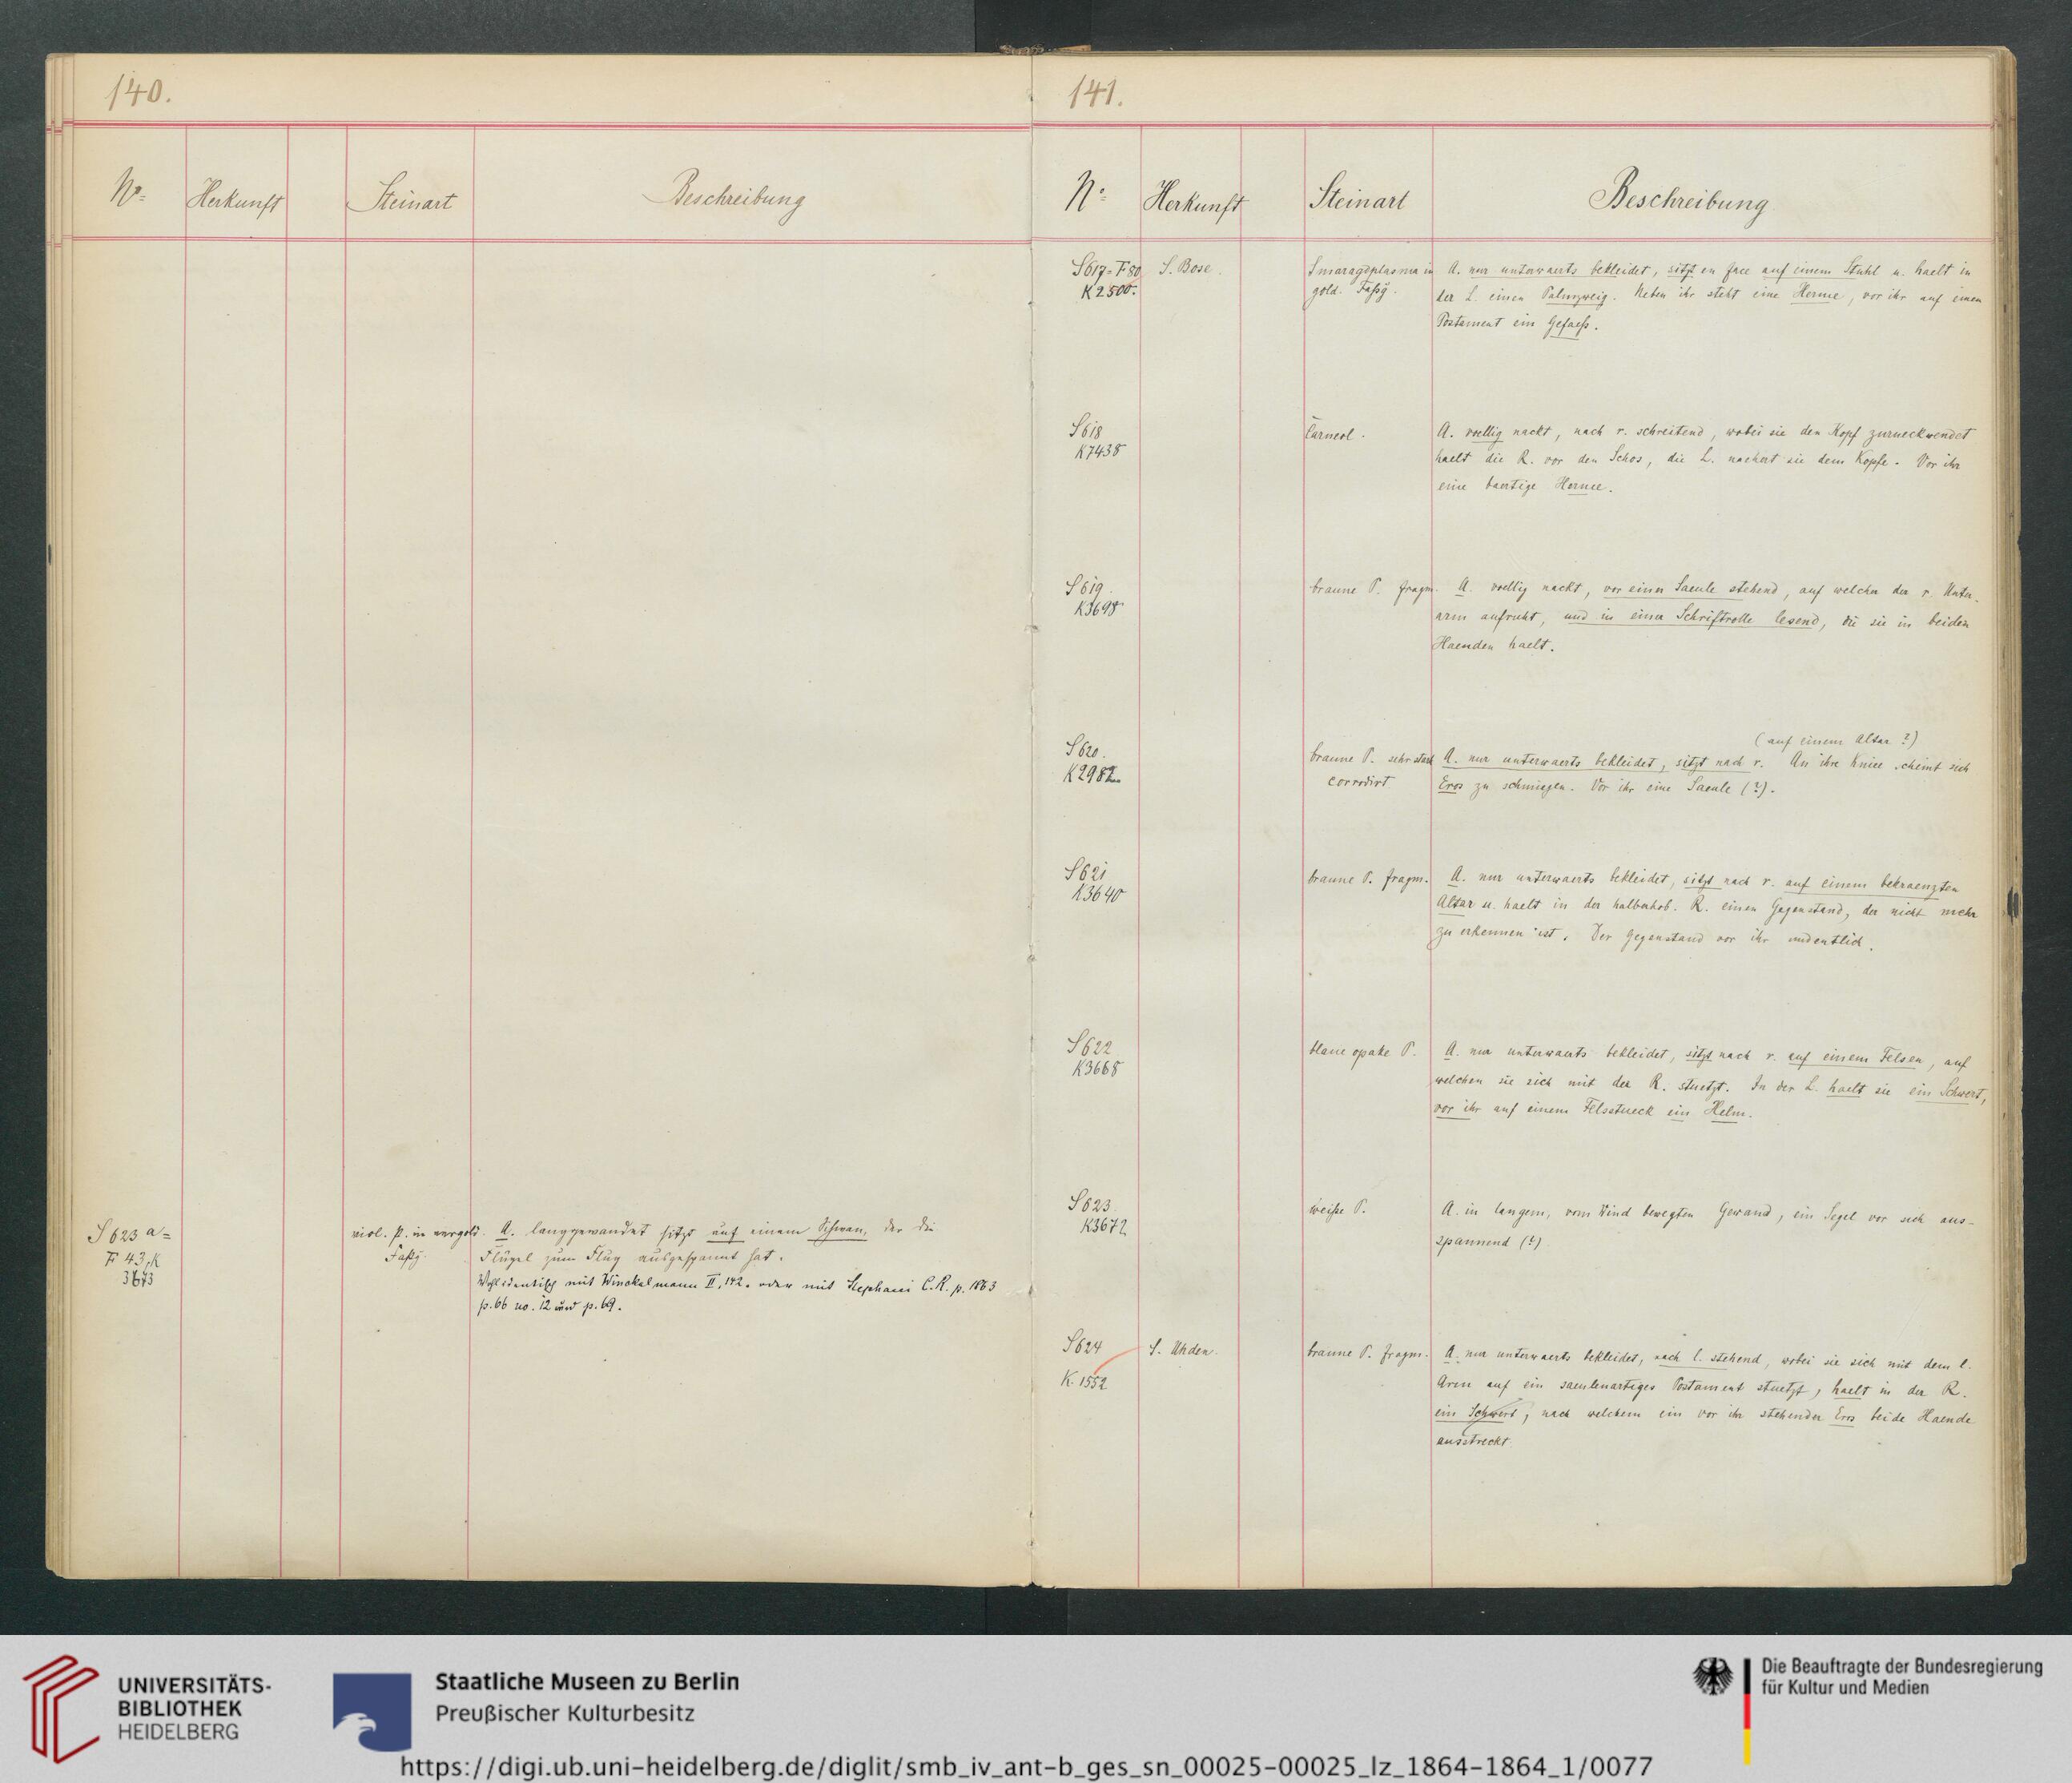 140.
Nº Herkunft Steinart Beschreibung
S 623 a = viol. P. in vergold. A. langgewandet sitzt auf einem Schwan, der die
F 43, K Faßg. Flügel zum Flug ausgespannt hat.
3673 Wohl identisch mit Winckelmann II, 142. oder mit Stephani C.R. p. 1863
p. 66 no. 12 und p. 69.
141.
Nº Herkunft Steinart Beschreibung
S 617 = F 80 S. Bose. Smaragdplasma in A. nur unterwaerts bekleidet, sitzt en face auf einem Stuhl u. haelt in
K 2500. gold. Faßg. der L. einen Palmzweig. Neben ihr steht eine Herme, vor ihr auf einem
Postament ein Gefaeß.
S 618 Carneol. A. voellig nackt, nach r. schreitend, wobei sie den Kopf zurueckwendet
K 7438 haelt die R. vor den Schos, die L. naehert sie dem Kopfe. Vor ihr
eine baertige Herme.
S 619. braune P. fragm. A. voellig nackt, vor einer Saeule stehend, auf welcher der r. Unter-
K 3698 arm aufruht, und in einer Schriftrolle lesend, die sie in beiden
Haenden haelt.
(auf einem Altar ?)
S 620. braune P. sehr stark A. nur unterwaerts bekleidet, sitzt nach r. An ihre Kniee scheint sich
K 298 corrodirt Eros zu schmiegen. Vor ihr eine Saeule (?).
S 621 braune P. fragm. A. nur unterwaerts bekleidet, sitzt nach r. auf einem bekraenzten
K 3640 Altar u. haelt in der halberhob. R. einen Gegenstand, der nicht mehr
zu erkennen ist. Der Gegenstand vor ihr undeutlich.
S 622 blaue opake P. A. nur unterwaerts bekleidet, sitzt nach r. auf einem Felsen, auf
K 3668 welchen sie sich mit der R. stuetzt. In der L. haelt sie ein Schwert,
vor ihr auf einem Felsstueck ein Helm.
S 623 weiße P. A. in langem, vom Wind bewegten Gewand, ein Segel vor sich aus-
K 3672 spannend (?)
S 624 S. Uhden. braune P. fragm. A. nur unterwaerts bekleidet, nach l. stehend, wobei sie sich mit dem l.
K. 1552 Arm auf ein saeulenartiges Postament stuetzt, haelt in der R.
ein Schwert, nach welchem ein vor ihr stehender Eros beide Haende
ausstreckt.
UNIVERSITÄTS-
BIBLIOTHEK
HEIDELBERG
Staatliche Museen zu Berlin
Preußischer Kulturbesitz
Die Beauftragte der Bundesregierung
für Kultur und Medien
https://digi.ub.uni-heidelberg.de/diglit/smb_iv_ant-b_ges_sn_00025-00025_lz_1864-1864_1/0077